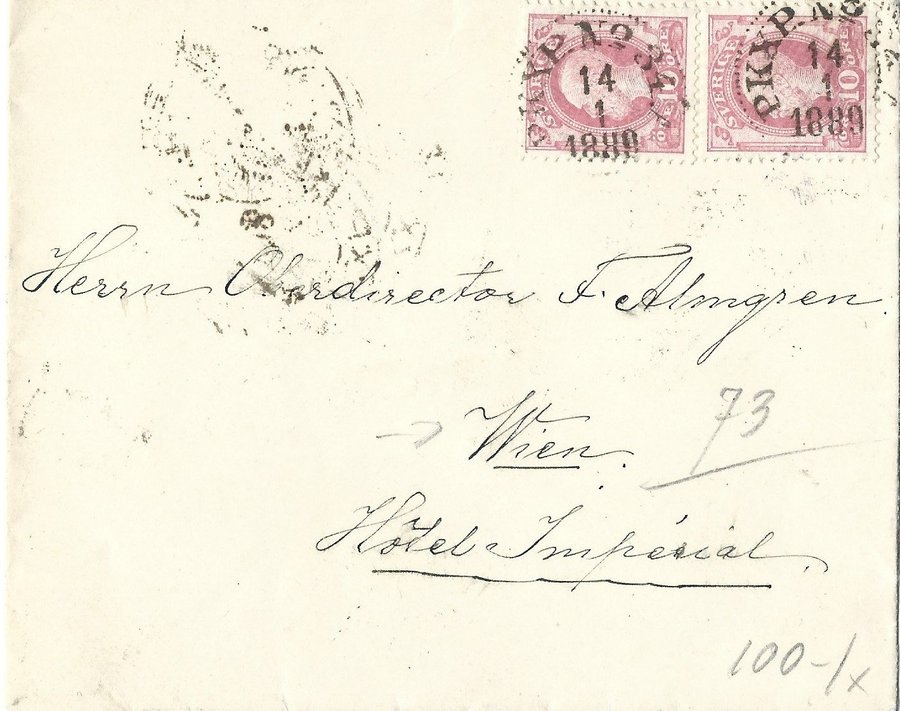 PKXP. No 34
14
1
1889
SVERIGE
10
ÖRE
PKXP. No 34
14
1
1889
SVERIGE
10
ÖRE
Herrn Oberdirector F. Almgren.
73
Wien.
Hôtel Impérial.
100-/x